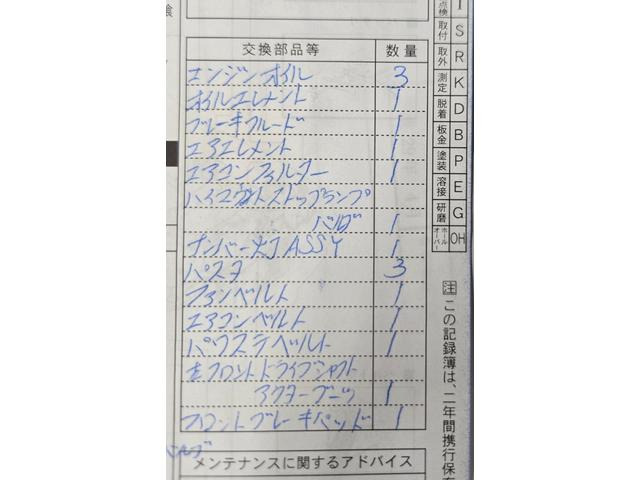 交換部品等 数量
エンジンオイル 3
オイルエレメント 1
ブレーキフルード 1
エアエレメント 1
エアコンフィルター 1
ハイマウントストップランプ
バルブ 1
ナンバー灯ASSY 1
パスタ 3
ファンベルト 1
エアコンベルト 1
パワステベルト 1
左フロントドライブシャフト
アウターブーツ 1
フロントブレーキパッド 1
メンテナンスに関するアドバイス
点検 T
取付 S
取外 R
測定 K
脱着 D
板金 B
塗装 P
溶接 E
研磨 G
オーバーホール OH
注 この記録簿は、二年間携行保